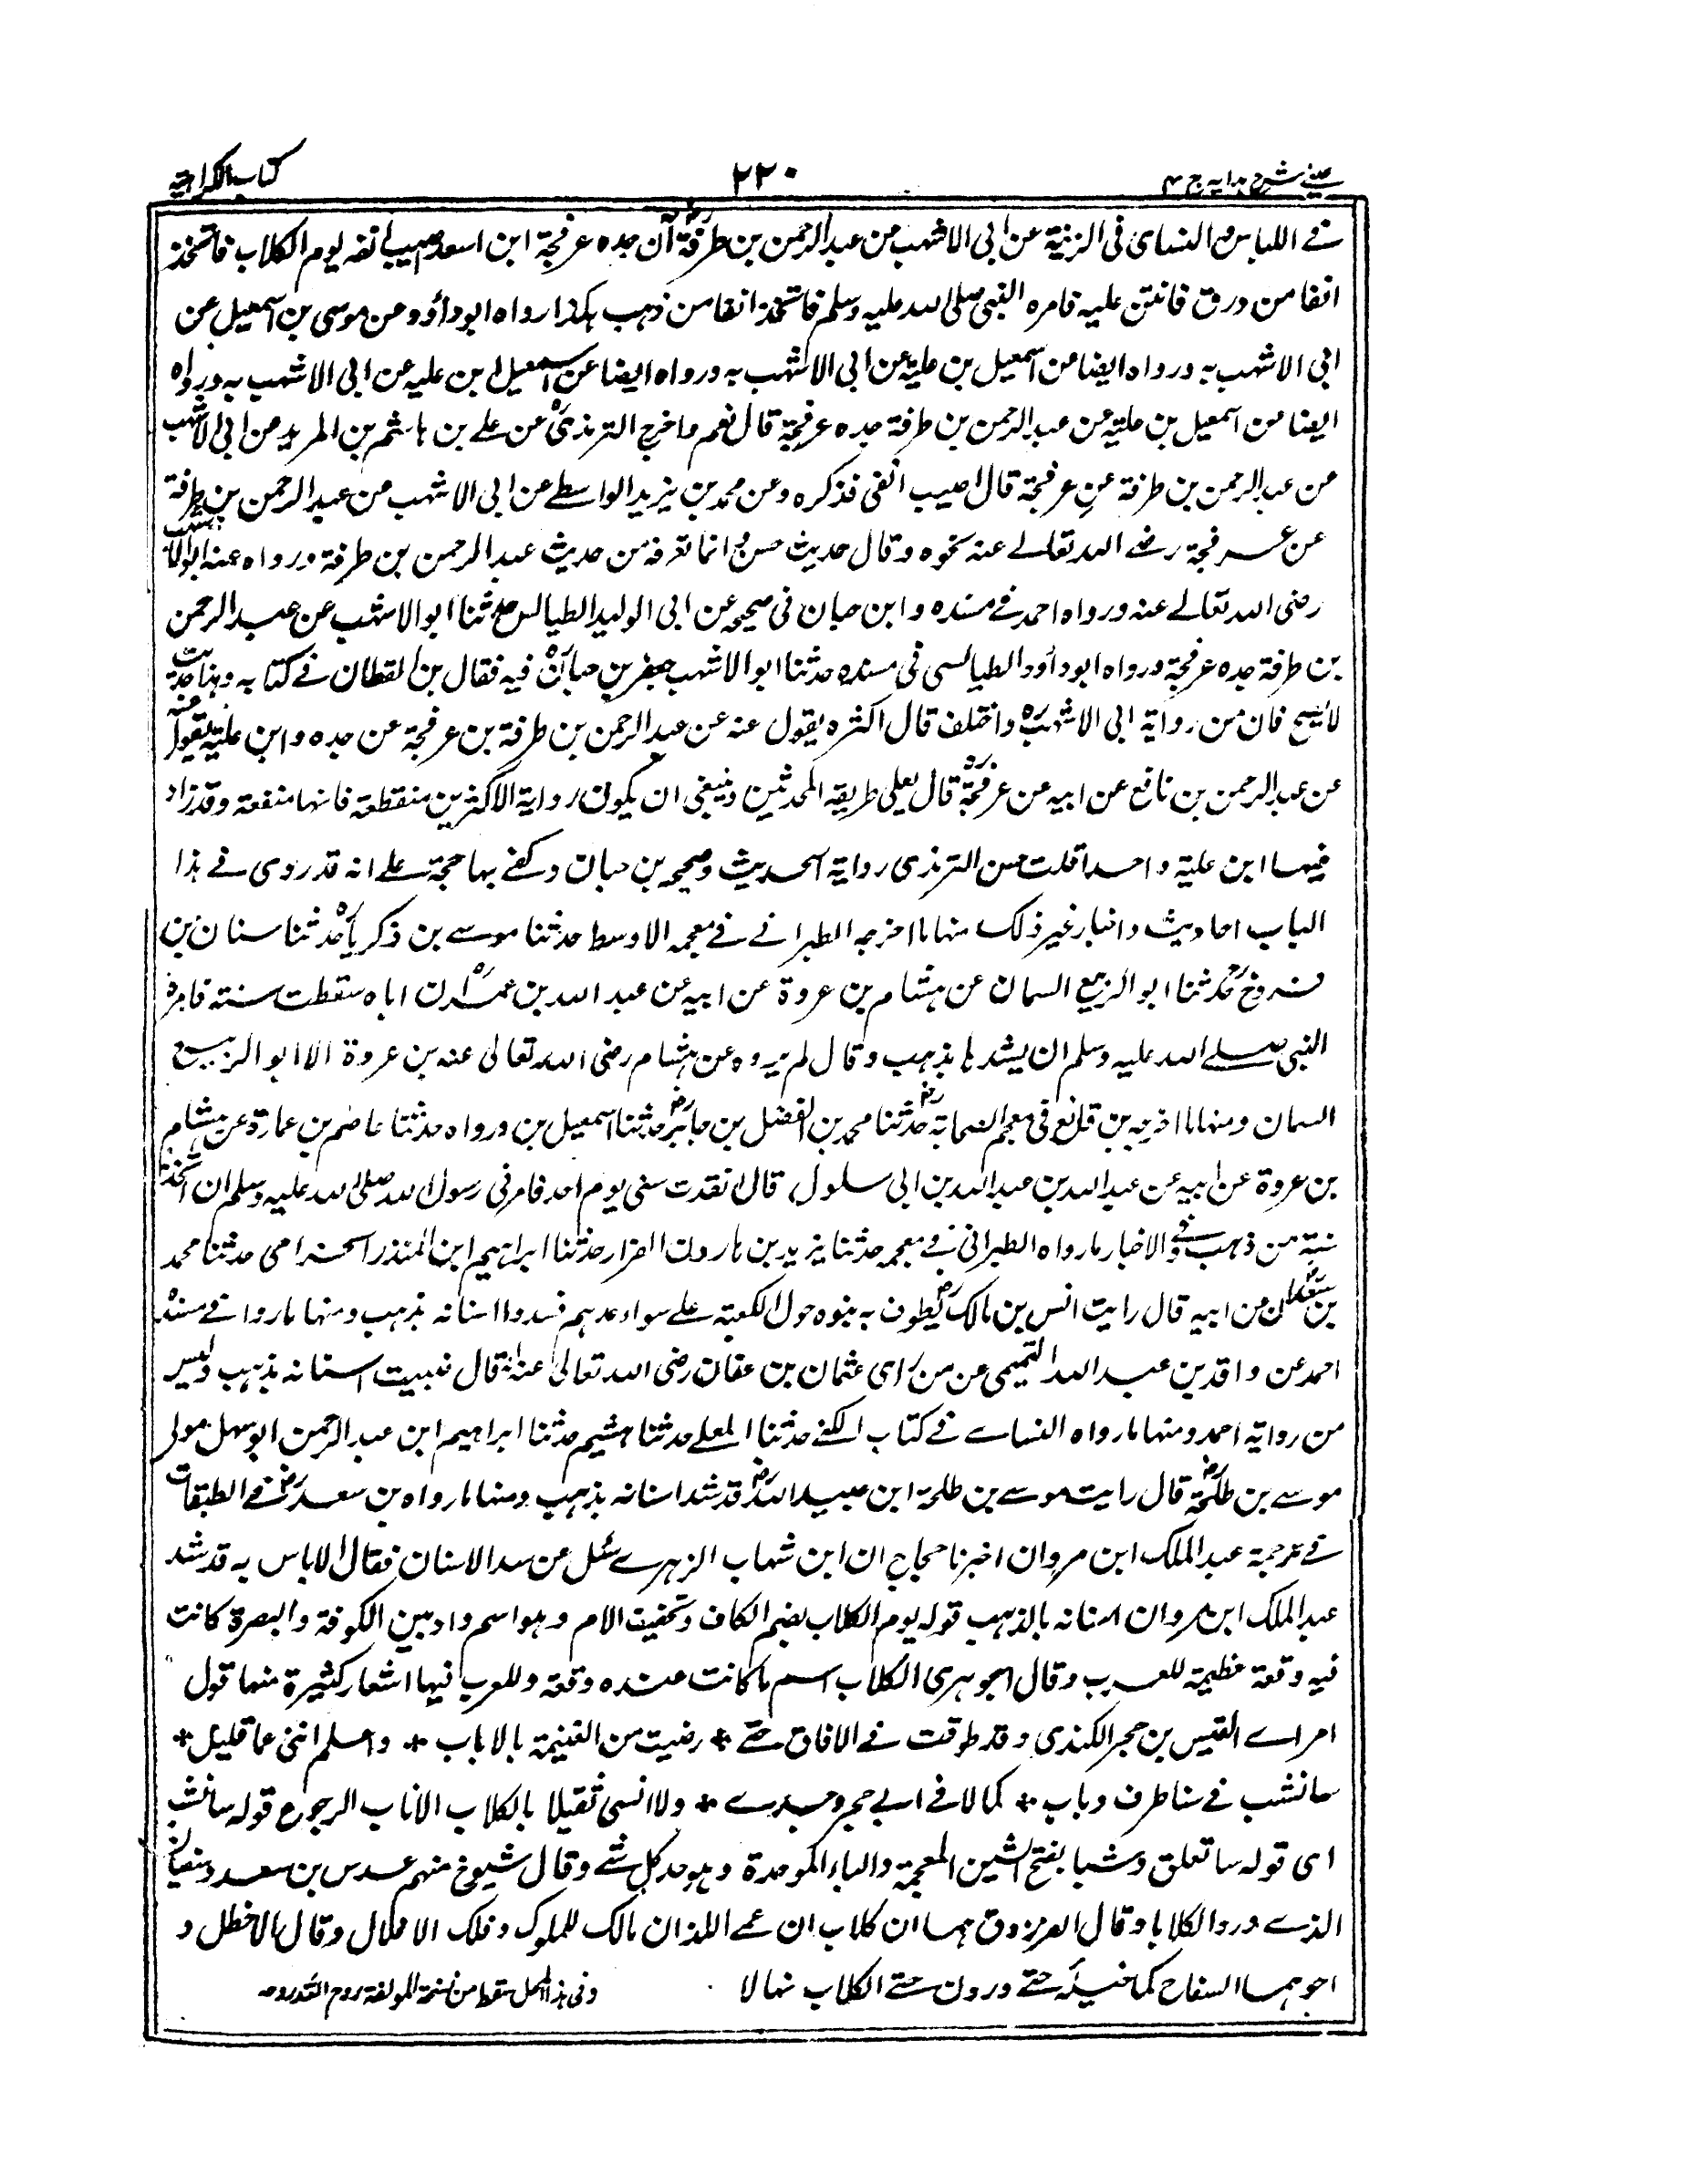 عینے شرح ہدایہ ج ۴
۲۲۰
کتاب الکراہیۃ
فے اللباس و النسای فی الزینۃ عن ابی الاشہب عن عبد الرحمن بن طرفۃ ان جدہ عرفجۃ ابن اسعد اصیب انفہ یوم الکلاب فاتخذ
انفا من ورق فانتن علیہ فامرہ النبی صلی اللہ علیہ وسلم فاتخذ انفا من ذہب ہکذا رواہ ابو داؤد عن موسی بن اسمعیل عن
ابی الاشہب بہ ورواہ ایضا عن اسمعیل بن علیۃ عن ابی الاشہب بہ ورواہ ایضا عن اسمعیل ابن علیہ عن ابی الاشہب بہ ورواہ
ایضا عن اسمعیل بن علیۃ عن عبد الرحمن بن طرفۃ جدہ عرفجۃ قال نعم واخرج الترمذی عن علے بن ہاشم بن البرید عن ابی الاشہب
عن عبد الرحمن بن طرفۃ عن عرفجۃ قال اصیب انفی فذکرہ وعن محمد بن یزید الواسطے عن ابی الاشہب عن عبد الرحمن بن طرفۃ
عن عرفجۃ رضے اللہ تعالے عنہ نحوہ وقال حدیث حسن انما نعرفہ من حدیث عبد الرحمن بن طرفۃ ورواہ عنہ ابو الاشہب
رضی اللہ تعالے عنہ ورواہ احمد فے مسندہ وابن حبان فی صحیحہ عن ابی الولید الطیالسی حدثنا ابو الاشہب عن عبد الرحمن
بن طرفۃ جدہ عرفجۃ ورواہ ابو داؤد الطیالسی فی مسندہ حدثنا ابو الاشہب جعفر بن حبان فیہ فقال بن القطان فے کتابہ وہذا حدیث
لا یصح فان من روایۃ ابی الاشہب واختلف قال اکثرہ یقول عنہ عن عبد الرحمن بن طرفۃ بن عرفجۃ عن جدہ وابن علیۃ یقول عنہ
عن عبد الرحمن بن نافع عن ابیہ عن عرفجۃ قال یعلی طریقہ المحدثین وینبغی ان یکون روایۃ الاکثرین منقطعۃ فانہا منعنعۃ وقد زاد
فیہا ابن علیۃ واحدا قلت حسن الترمذی روایۃ الحدیث وصححہ بن حبان وکفے بہا حجۃ علے انہ قد روی فے ہذا
الباب احادیث واخبار غیر ذلک منہا ما اخرجہ الطبرانے فے معجمہ الاوسط حدثنا موسے بن ذکریا حدثنا سنان بن
فروخ حدثنا ابو الربیع السمان عن ہشام بن عروۃ عن ابیہ عن عبد اللہ بن عمر ان اباہ سقطت سنتہ فامرہ
النبی صلے اللہ علیہ وسلم ان یشدہا بذہب وقال لم یروہ عن ہشام رضی اللہ تعالی عنہ بن عروۃ الا ابو الربیع
السمان ومنہا ما اخرجہ بن قانع فی معجم الصحابۃ حدثنا محمد بن الفضل بن جابر حدثنا اسمعیل بن ورواہ حدثنا عاصم بن عمارۃ عن ہشام
بن عروۃ عن ابیہ عن عبد اللہ بن عبد اللہ بن ابی سلول قال انقدت سنی یوم احد فامرنی رسول اللہ صلی اللہ علیہ وسلم ان اتخذ
ثنیۃ من ذہب والاخبار ما رواہ الطبرانی فے معجمہ حدثنا یزید بن ہارون القزار حدثنا ابراہیم ابن المنذر الحزامی حدثنا محمد
بن سعدان عن ابیہ قال رایت انس بن مالک یطوف بہ بنوہ حول الکعبۃ علے سواعدہم فشدوا اسنانہ بذہب ومنہا ما روا فے مسند
احمد عن واقد بن عبد اللہ التمیمی عن من رای عثمان بن عفان رضی اللہ تعالی عنہ انہ قال ضببت اسنانہ بذہب ولیس
من روایۃ احمد ومنہا ما رواہ النساے فے کتاب الکنے حدثنا المعلے حدثنا ہشیم حدثنا ابراہیم ابن عبد الرحمن ابو سہل مولی
موسے بن طلحۃ قال رایت موسے بن طلحۃ ابن عبید اللہ قد شد اسنانہ بذہب ومنہا ما رواہ بن سعد فے الطبقات
فے ترجمۃ عبد الملک ابن مروان اخبرنا حجاج ان ابن شہاب الزہرے سئل عن شد الاسنان فقال لا باس بہ قد شد
عبد الملک ابن مروان اسنانہ بالذہب قولہ یوم الکلاب بضم الکاف وتخفیف الام وہو اسم واد بین الکوفۃ والبصرۃ کانت
فیہ وقعۃ عظیمۃ للعرب وقال الجوہری الکلاب اسم ما کانت عندہ وقعۃ وللعرب فیہا اشعار کثیرۃ منہا قول
امراے القیس بن حجر الکندی وقد طوقت فے الافاق حتے * رضیت من الغنیمۃ بالایاب * واعلم اننی عما قلیل *
سانشب فے شبا ظرف وناب * کما لاقے ابے حجر وجدے * ولا انسی ثقیلا بالکلاب الایاب الرجوع قولہ سانشب
ای قولہ ساتعلق وشبا بفتح الشین المعجمۃ والباء الموحدۃ وہو حد کل شے وقال شیوخ منہم عدس بن سعد وسفیان
الذے ورد الکلابا وقال الفرزدق ہما ان کلاب ان عمے اللذان مالک للملوک وفلک الاغلال وقال الاخطل و
اخوہما السفاح کما خیلہ حتے وردن حتے الکلاب نہالا
وفی ہذا المحل سقط من نسخۃ المولفۃ روح اللہ روحہ